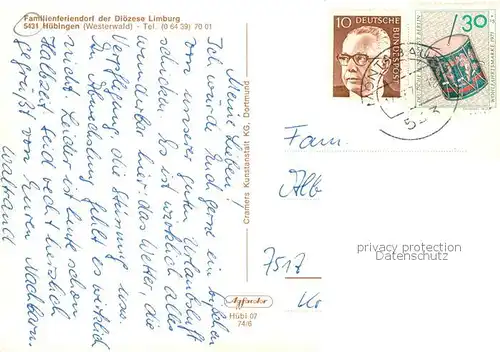 Familienferiendorf der Diözese Limburg
5431 Hübingen (Westerwald) - Tel. (0 64 39) 70 01
Meine Lieben!
Ich würde Euch gerne ein bißchen
von unserer guten Urlaubsluft
schicken. Es ist wirklich alles
wunderbar hier, das Wetter, die
Verpflegung, die Stimmung usw.
An Abwechslung fehlt es wirklich
nicht. Leider ist heute schon
Halbzeit. Seid recht herzlich
gegrüßt von Euren Nachbarn
Waltraud
Cramers Kunstanstalt KG, Dortmund
Hübi 07
74/6
10
DEUTSCHE
BUNDESPOST
30
Fam.
Alb
7517
Kr
privacy protection
Datenschutz